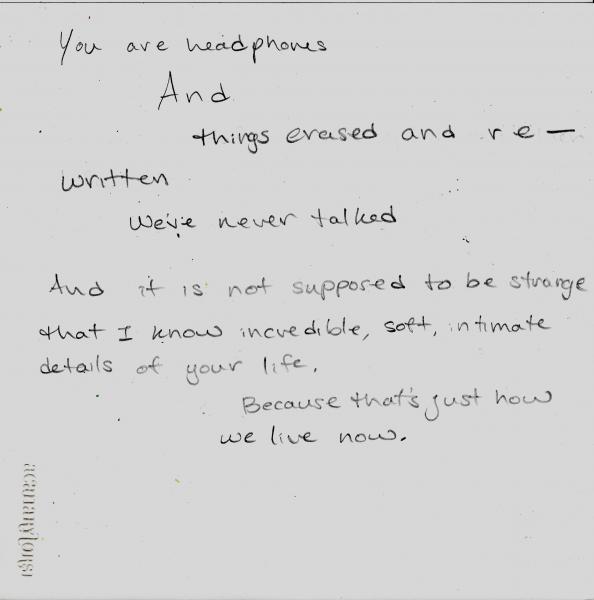 You are headphones
And
things erased and re—
written
We've never talked
And it is not supposed to be strange
that I know incredible, soft, intimate
details of your life.
Because that's just how
we live now.